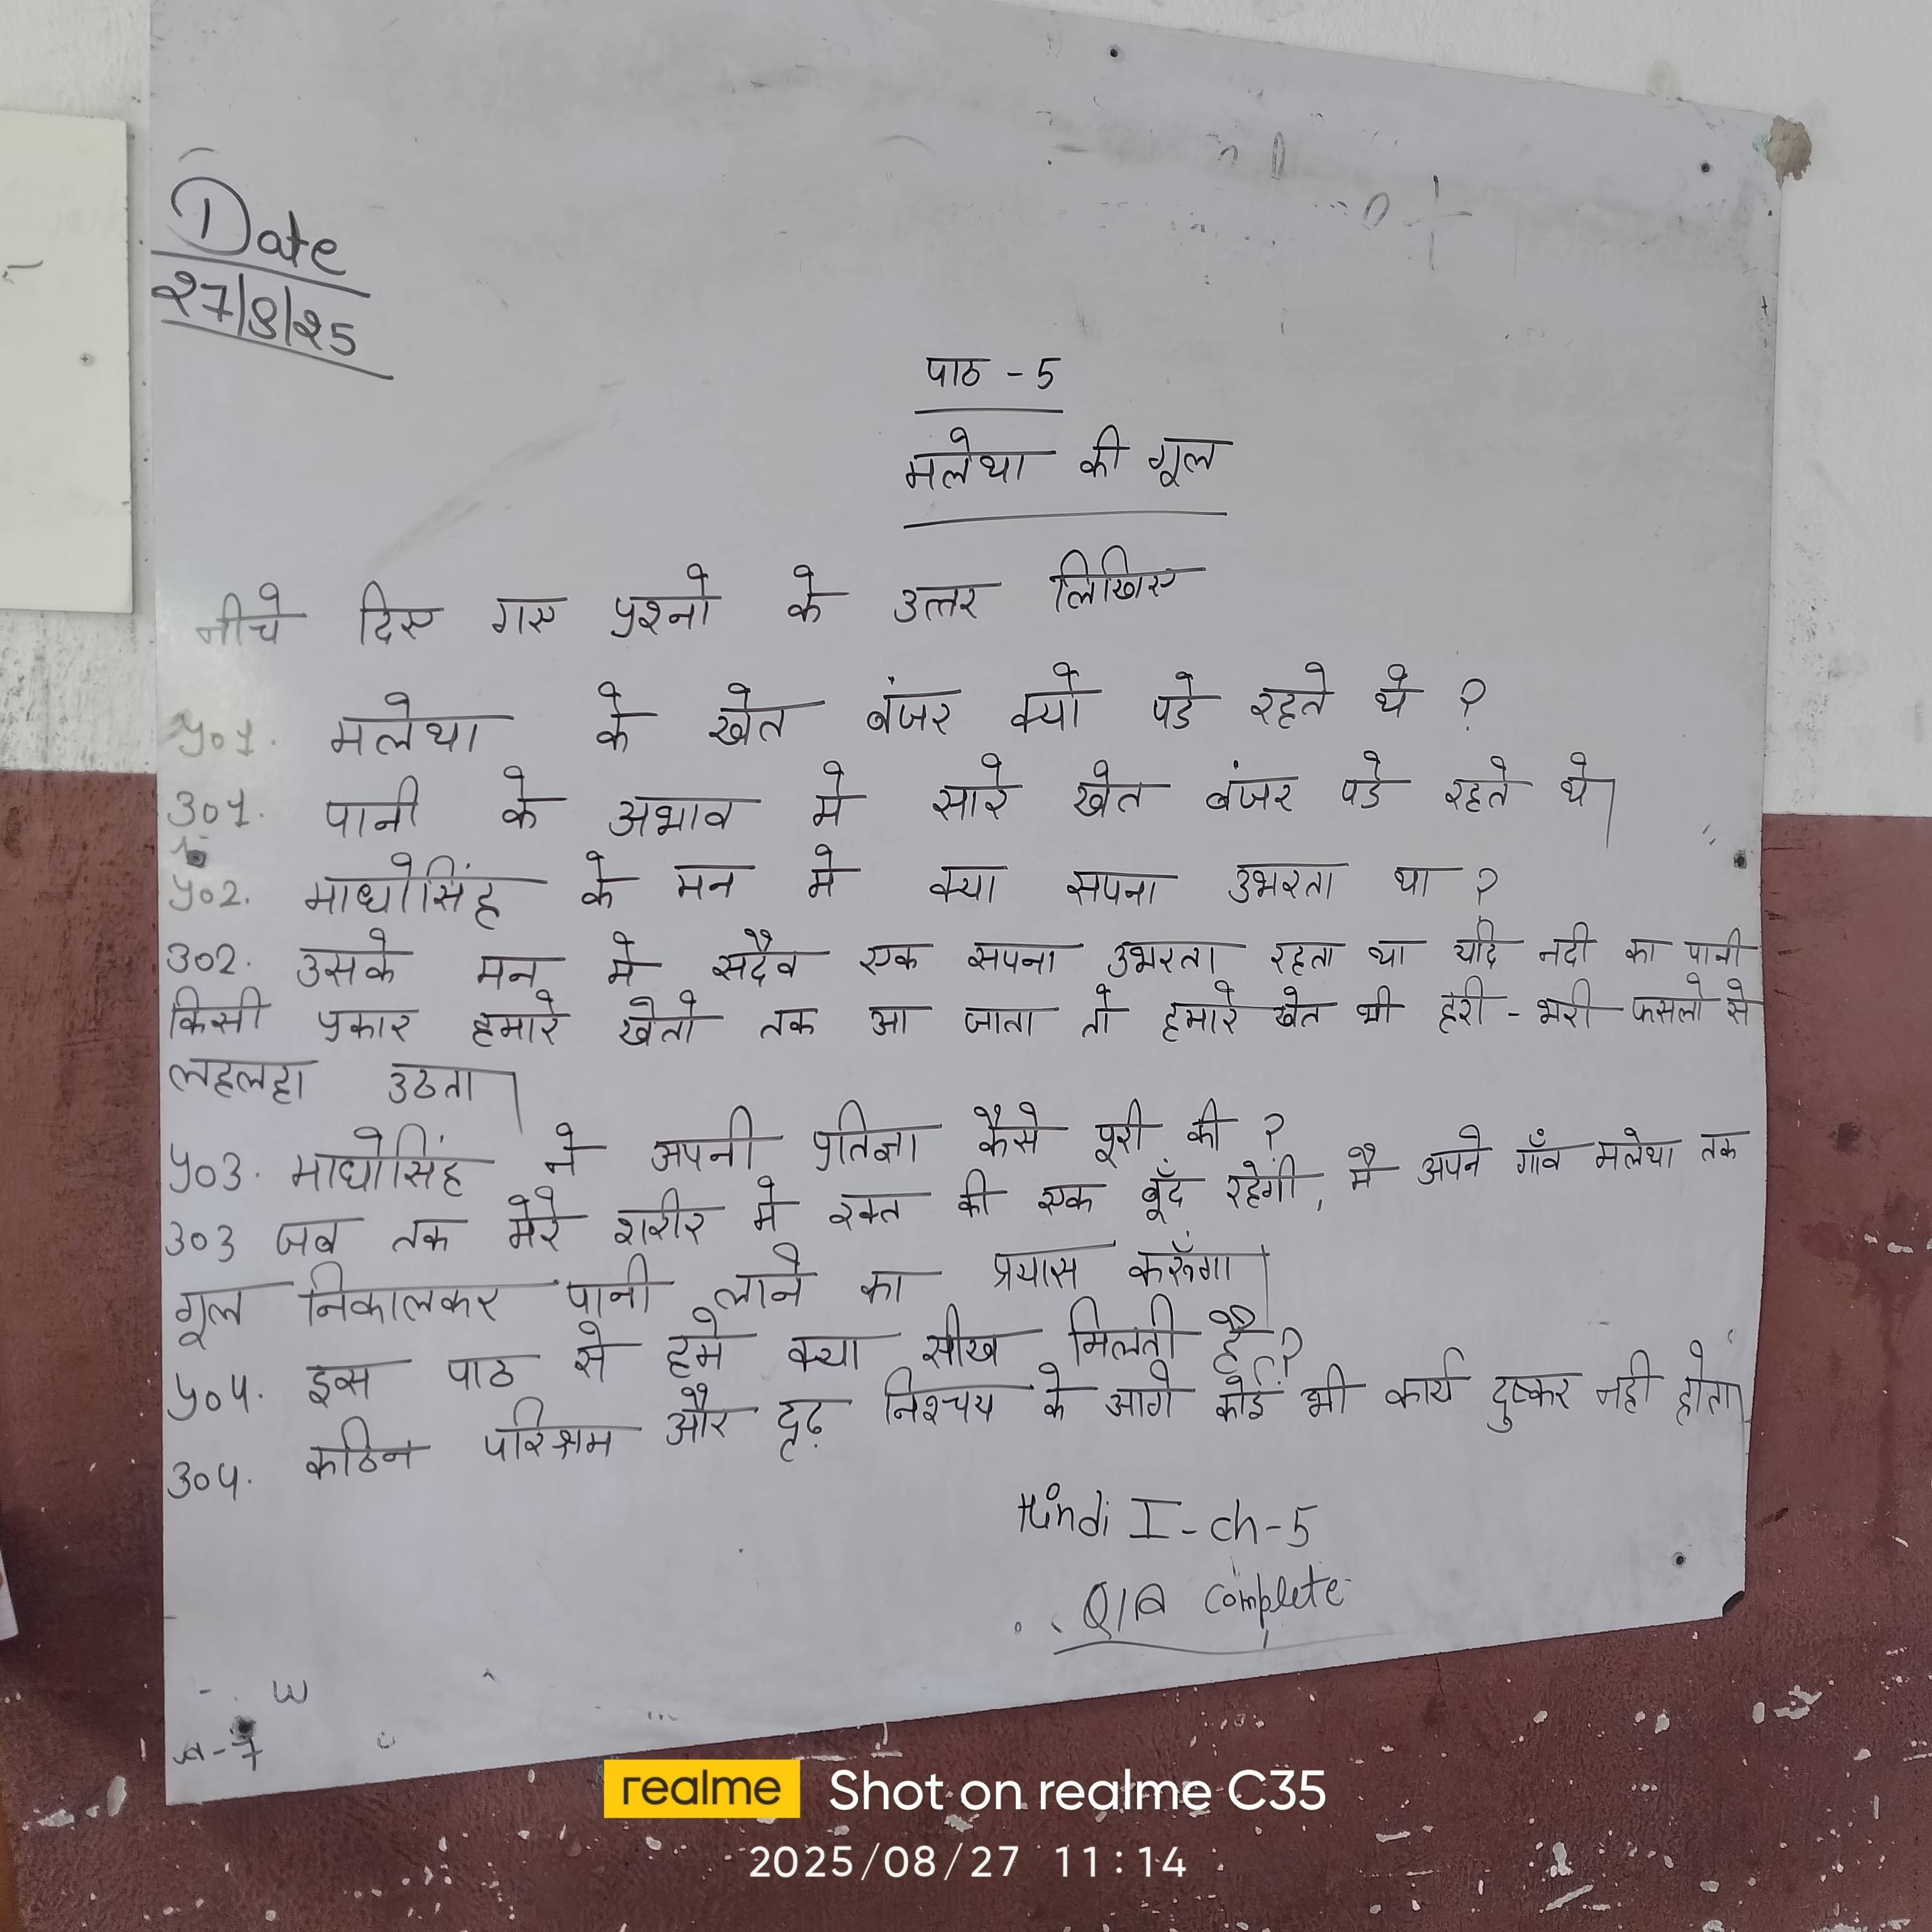 Date
27/8/25
पाठ - 5
मलेथा की गूल
नीचे दिए गए प्रश्नो के उत्तर लिखिए
प्र01. मलेथा के खेत बंजर क्यो पडे रहते थे ?
उ01. पानी के अभाव मे सारे खेत बंजर पडे रहते थे।
प्र02. माधोसिंह के मन मे क्या सपना उभरता था ?
उ02. उसके मन मे सदैव एक सपना उभरता रहता था यदि नदी का पानी
किसी प्रकार हमारे खेतो तक आ जाता तो हमारे खेत भी हरी - भरी फसलो से
लहलहा उठता।
प्र03. माधोसिंह ने अपनी प्रतिज्ञा कैसे पूरी की ?
उ03 जब तक मेरे शरीर मे रक्त की एक बूँद रहेगी, मै अपने गाँव मलेथा तक
गूल निकालकर पानी लाने का प्रयास करूँगा।
प्र04. इस पाठ से हमे क्या सीख मिलती है ?
उ04. कठिन परिश्रम और दृढ़ निश्चय के आगे कोई भी कार्य दुष्कर नही होता।
Hindi I - ch - 5
Complete
realme Shot on realme C35
2025/08/27 11:14